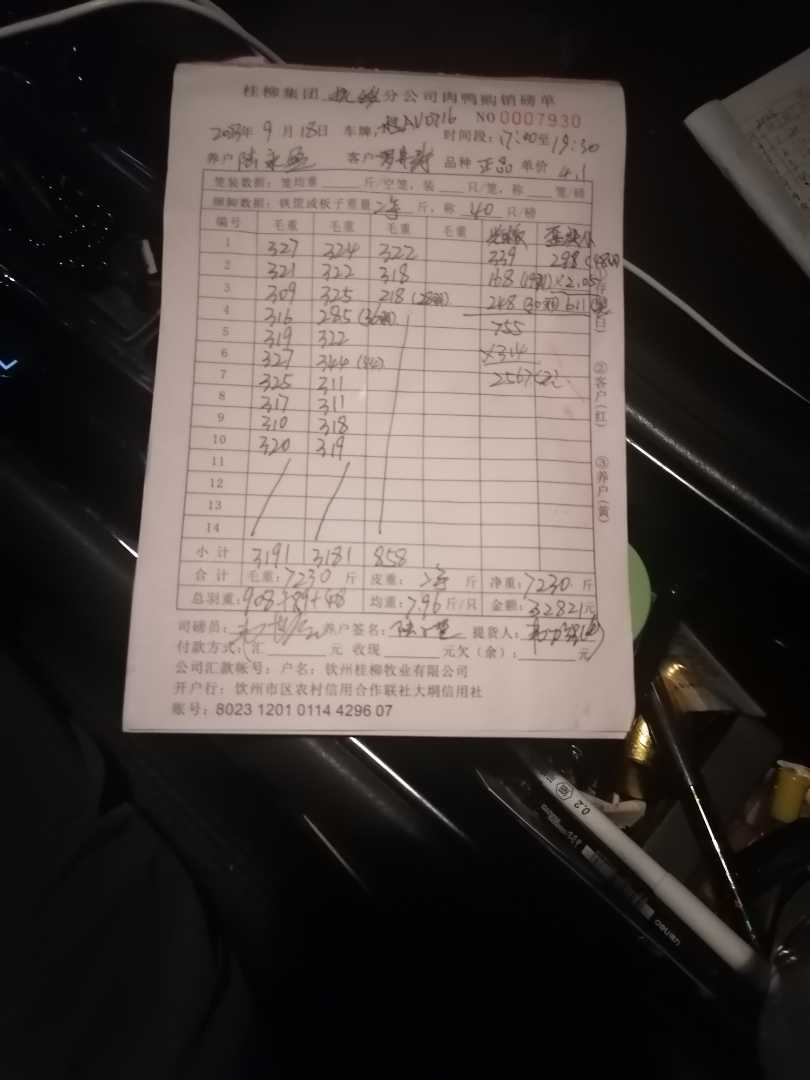 桂柳集团 分公司肉鸭购销磅单
NO 0007930
2023年 9 月 18日 车牌: AV0716 时间段: 17:00至 19:30
养户 陆 客户 品种 正品 单价 4.1
笼装数据: 笼均重 斤/空笼, 装 只/笼, 称 笼/磅
捆脚数据: 铁筐或板子重量 斤, 称 40 只/磅
编号 毛重 毛重 毛重 毛重
1 327 324 322 339 298
2 321 322 318 168 ×2.05
3 309 325 218 (28 248 (30 611
4 316 285 (36 755
5 319 322 ×3.4
6 327 344 2567
7 325 311
8 317 311
9 310 318
10 320 319
11
12
13
14
小 计 3191 3181 858
合 计 毛重: 7230 斤 皮重: 斤 净重: 7230 斤
总羽重: 908+89+48 均重: 7.96 斤/只 金额: 32821元
司磅员: 养户签名: 提货人:
付款方式: (汇 元 收现 元欠 (余): 元)
公司汇款帐号: 户名: 钦州桂柳牧业有限公司
开户行: 钦州市区农村信用合作联社大垌信用社
账号: 8023 1201 0114 4296 07
②客户(红)
③养户(黄)
0.2
deli